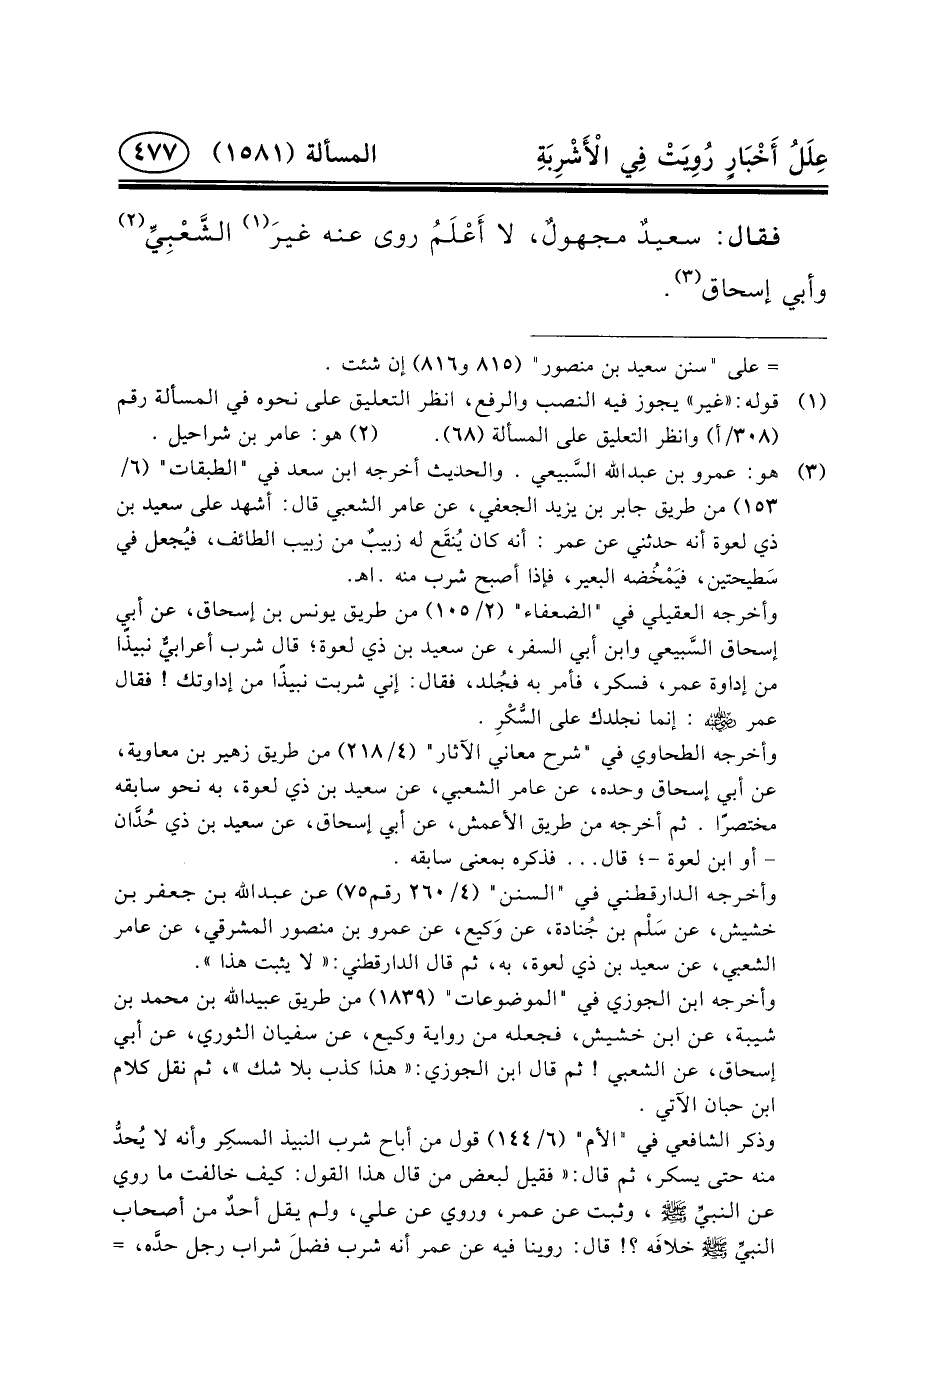 عِلَلُ أَخْبَارٍ رُوِيَتْ فِي الْأَشْرِبَةِ المسألة (١٥٨١) ٤٧٧
فقال: سعيدٌ مجهولٌ، لا أَعْلَمُ روى عنه غيرَ(١) الشَّعْبِيِّ(٢)
وأبي إسحاق(٣).
= على "سنن سعيد بن منصور" (٨١٥ و٨١٦) إن شئت .
(١) قوله: «غير» يجوز فيه النصب والرفع، انظر التعليق على نحوه في المسألة رقم
(٣٠٨/أ) وانظر التعليق على المسألة (٦٨). (٢) هو: عامر بن شراحيل .
(٣) هو: عمرو بن عبدالله السَّبيعي . والحديث أخرجه ابن سعد في "الطبقات" (٦/
١٥٣) من طريق جابر بن يزيد الجعفي، عن عامر الشعبي قال: أشهد على سعيد بن
ذي لعوة أنه حدثني عن عمر : أنه كان يُنقَع له زبيبٌ من زبيب الطائف، فيُجعل في
سَطيحتين، فيَمْخُضه البعير، فإذا أصبح شرب منه .اهـ.
وأخرجه العقيلي في "الضعفاء" (٢/١٠٥) من طريق يونس بن إسحاق، عن أبي
إسحاق السَّبيعي وابن أبي السفر، عن سعيد بن ذي لعوة؛ قال شرب أعرابيٌّ نبيذًا
من إداوة عمر، فسكر، فأمر به فجُلد، فقال: إني شربت نبيذًا من إداوتك ! فقال
عمر رضي الله عنه : إنما نجلدك على السُّكْرِ .
وأخرجه الطحاوي في "شرح معاني الآثار" (٤/٢١٨) من طريق زهير بن معاوية،
عن أبي إسحاق وحده، عن عامر الشعبي، عن سعيد بن ذي لعوة، به نحو سابقه
مختصرًا . ثم أخرجه من طريق الأعمش، عن أبي إسحاق، عن سعيد بن ذي حُدَّان
- أو ابن لعوة -؛ قال... فذكره بمعنى سابقه .
وأخرجه الدارقطني في "السنن" (٤/٢٦٠ رقم٧٥) عن عبدالله بن جعفر بن
خشيش، عن سَلْم بن جُنادة، عن وَكيع، عن عمرو بن منصور المشرقي، عن عامر
الشعبي، عن سعيد بن ذي لعوة، به، ثم قال الدارقطني: « لا يثبت هذا ».
وأخرجه ابن الجوزي في "الموضوعات" (١٨٣٩) من طريق عبيدالله بن محمد بن
شيبة، عن ابن خشيش، فجعله من رواية وكيع، عن سفيان الثوري، عن أبي
إسحاق، عن الشعبي ! ثم قال ابن الجوزي: « هذا كذب بلا شك »، ثم نقل كلام
ابن حبان الآتي .
وذكر الشافعي في "الأم" (٦/١٤٤) قول من أباح شرب النبيذ المسكِر وأنه لا يُحدُّ
منه حتى يسكر، ثم قال: « فقيل لبعض من قال هذا القول: كيف خالفت ما روي
عن النبيِّ ﷺ ، وثبت عن عمر، وروي عن علي، ولم يقل أحدٌ من أصحاب
النبيِّ ﷺ خلافَه ؟! قال: روينا فيه عن عمر أنه شرب فضلَ شراب رجل حدَّه، =